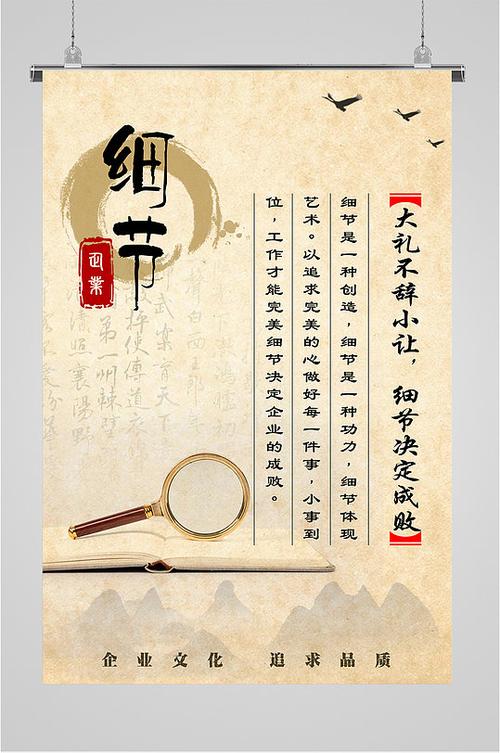 细节
企業
大礼不辞小让，细节决定成败
细节是一种创造，细节是一种功力，细节体现
艺术。以追求完美的心做好每一件事，小事到
位，工作才能完美细节决定企业的成败。
企业文化 追求品质